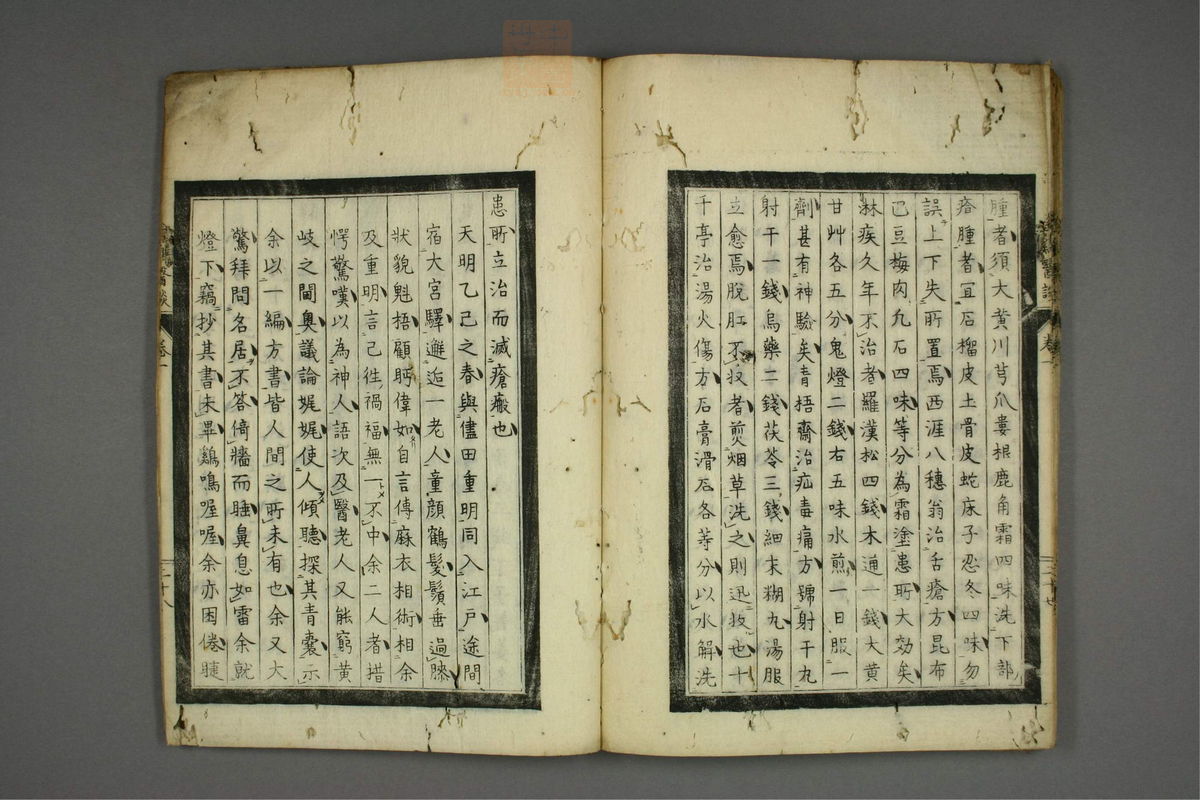 腫者須大黃川芎瓜婁根鹿角霜四味洗下部
瘡腫者冝石榴皮土骨皮蛇床子忍冬四味勿
誤上下失所置焉西涯八穗翁治舌瘡方昆布
巴豆梅肉丸石四味等分為霜塗患所大効矣
淋疾久年不治者羅漢松四錢木通一錢大黃
甘艸各五分鬼燈二錢右五味水煎一日服一
劑甚有神驗矣青梧齋治疝毒痛方號射干丸
射干一錢烏藥二錢茯苓三錢細末糊丸湯服
立愈焉脫肛不收者煎烟草洗之則迅收也十
千亭治湯火傷方石膏滑石各等分以水解洗
患所立治而滅瘡瘢也
天明乙巳之春與儘田重明同入江戶途間
宿大宮驛邂逅一老人童顏鶴髮鬚垂過膝
狀貌魁梧顧眄偉如自言傳麻衣相術相余
及重明言己徃禍福無一不中余二人者措
愕驚嘆以為神人語次及醫老人又能窮黃
岐之閫奧議論娓娓使人傾聽探其青囊示
余以一編方書皆人間之所未有也余又大
驚拜問名居不答倚牆而睡鼻息如雷余就
燈下竊抄其書未畢鷄鳴喔喔余亦困倦睫
卷一
二十八